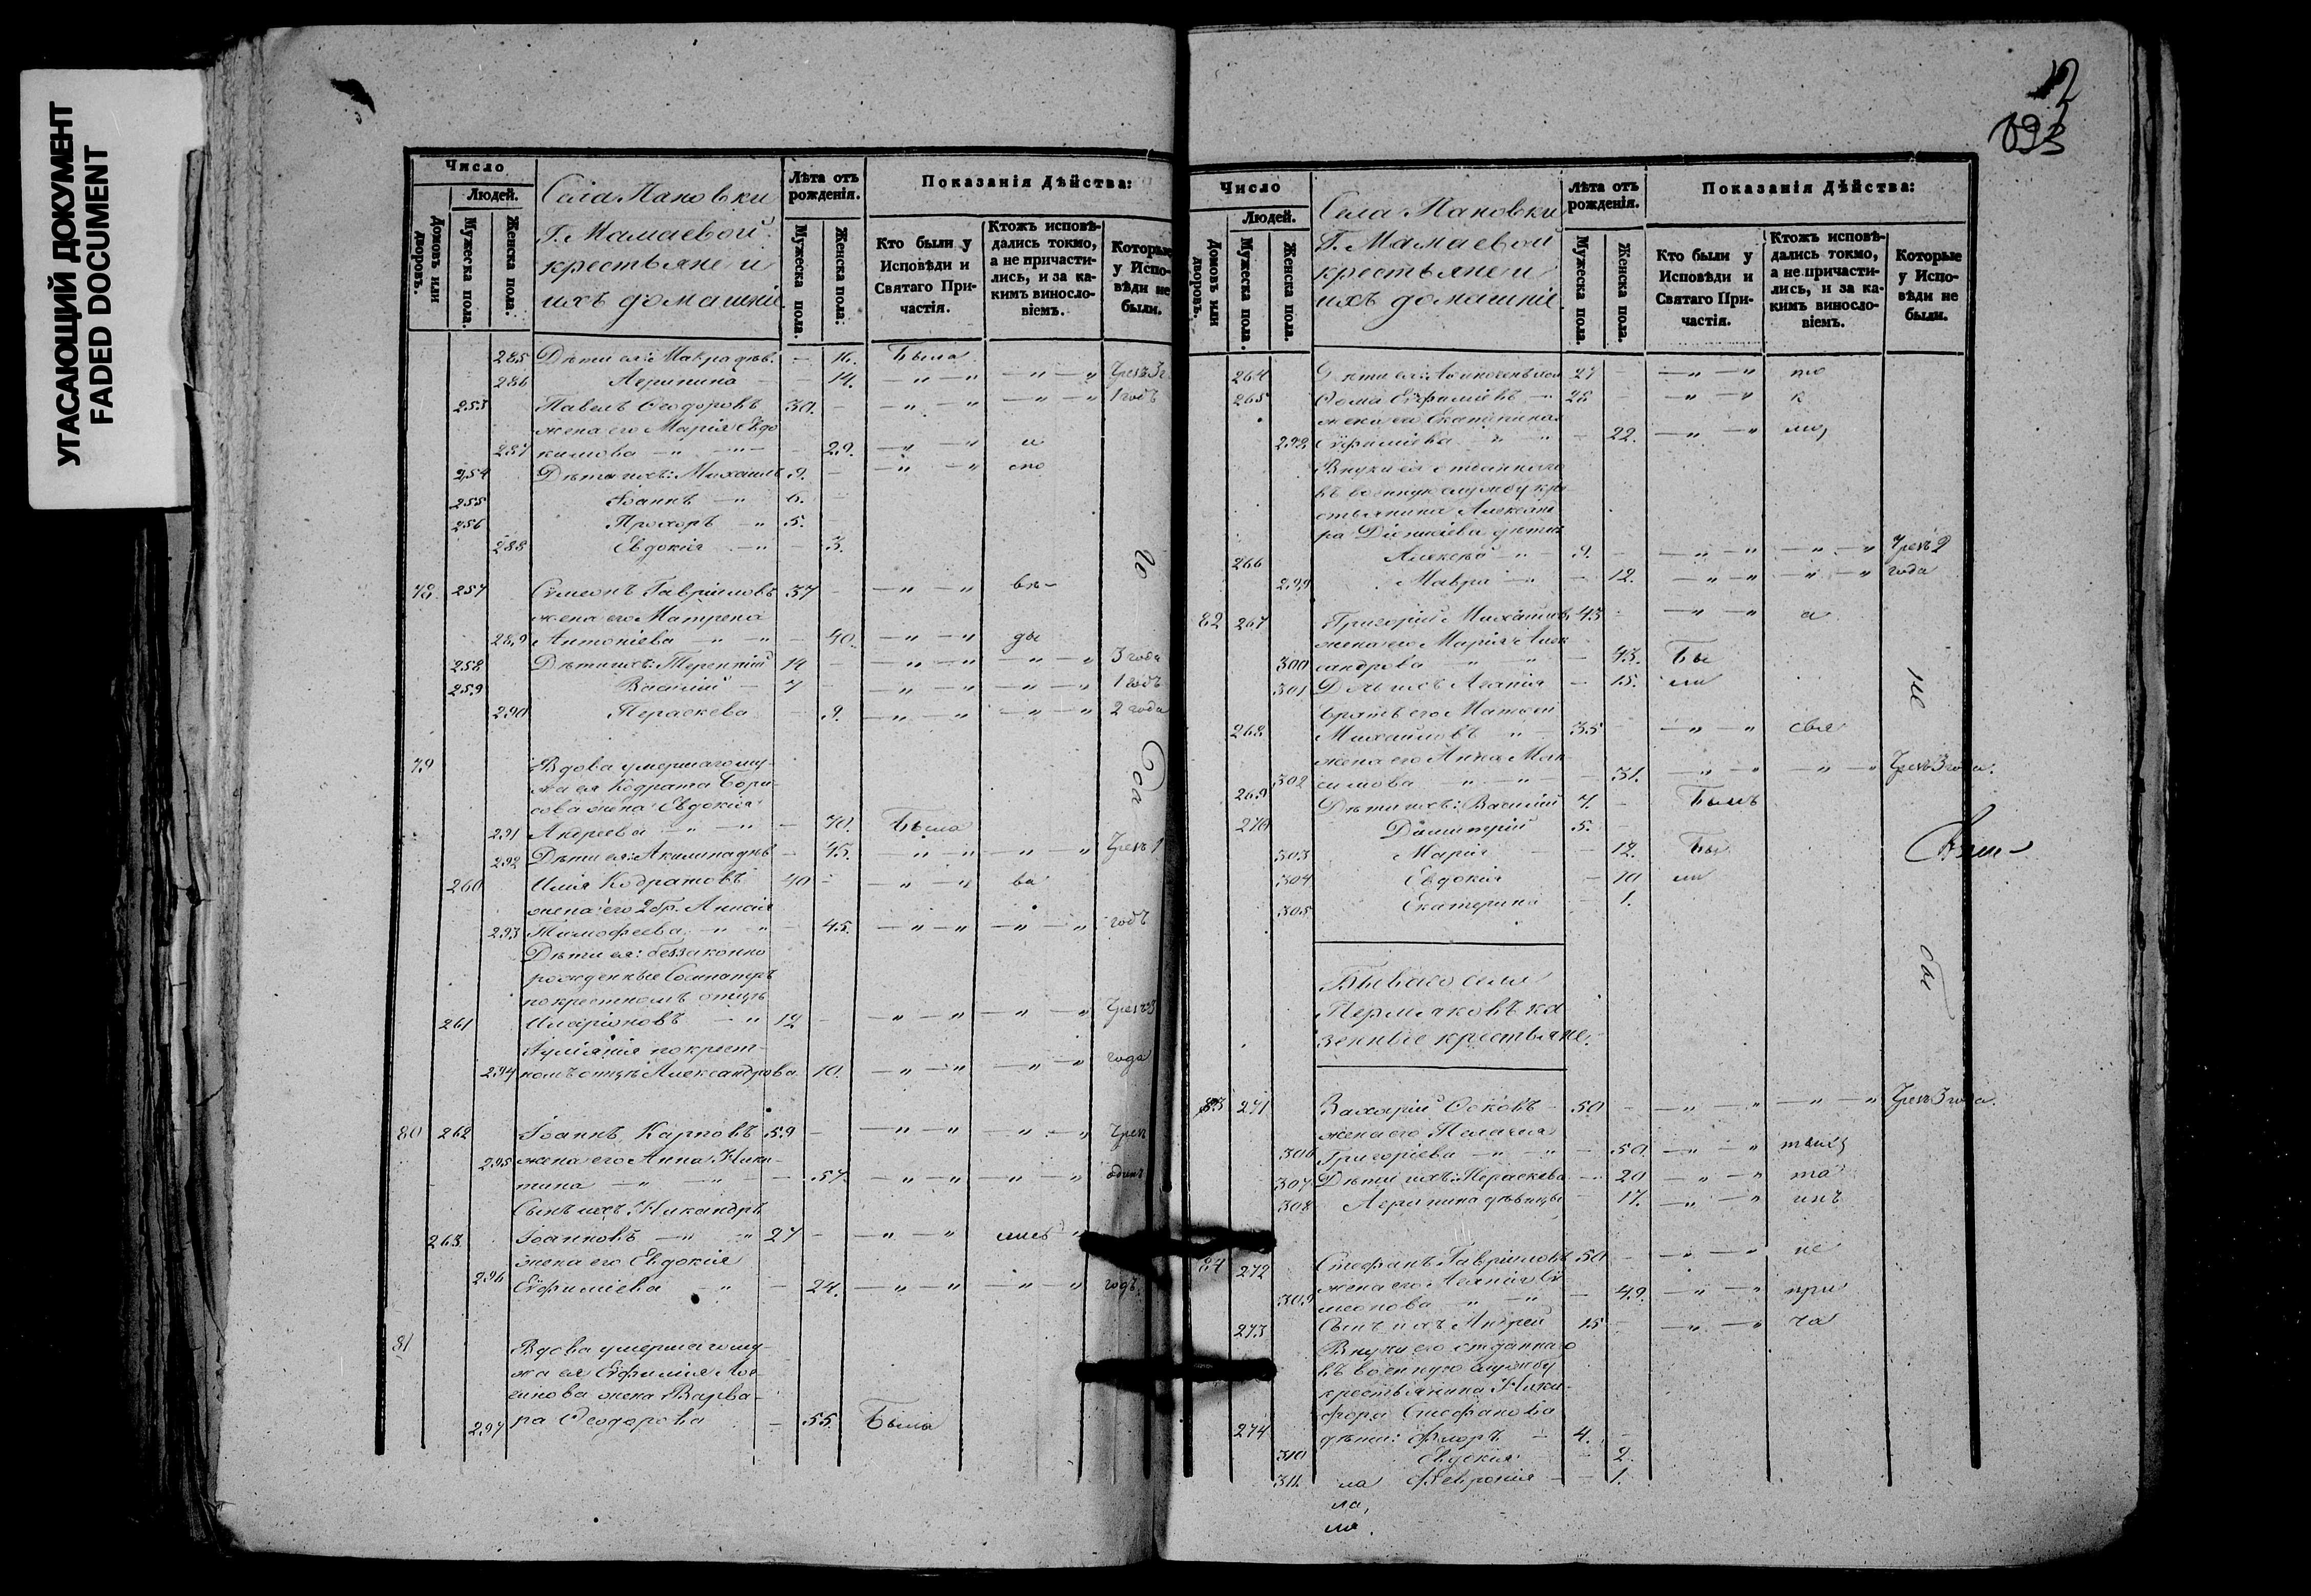 УГАСАЮЩИЙ ДОКУМЕНТ
FADED DOCUMENT
Число
Людей.
Домовъ или дворовъ.
Мужеска пола.
Женска пола.
Села Пановки
Г. Мамаевой
крестьяне и
ихъ домашніе
Лѣта отъ рожденія.
Мужеска пола.
Женска пола.
Показанія Дѣйства:
Кто были у Исповѣди и Святаго Причастія.
Ктожъ исповѣдались токмо, а не причастились, и за какимъ винословіемъ.
Которые у Исповѣди не были.
285 Дѣти ея: Макра дѣв. — 16. Была
286 Агрипина — 14. —"—" —"—" Чрезъ 3 г
253 Павелъ Ѳеодоровъ 30. — —"—" —"—" 1 годъ
жена его Марія Евдо
287 кимова —"—"— — 29. —"—" и
254 Дѣти ихъ: Михаилъ 9. — —"—" спо
255 Іоаннъ —" 6. —
256 Прохоръ —" 5. —
288 Евдокія —" — 3.
78 257 Симеонъ Гавриловъ 37 — —"—" вѣ-
жена его Матрена
289 Антоніева —"—" — 40. —"—" ды
258 Дѣти ихъ: Терентій 14 — —"—" —"—" 3 года
259 Василій — 7 — —"—" —"—" 1 годъ
290 Параскева — 9. —"—" —"—" 2 года
79 Вдова умершаго му-
жа ея Кодрата Бори-
сова жена Евдокія
291 Андреева —"—" — 70. Была
292 Дѣти ея: Акилина дѣв — 45. —"—" —"—" Чрезъ 1
260 Илія Кодратовъ 40 — —"—" ва
жена его 2 бр. Анисія
293 Тимофеева —"—" — 45. —"—" —"—" годъ
Дѣти ея: беззаконно
рожденные
по крестномъ отцѣ
261 Иларіоновъ —" 12 — —"—" —"—" Чрезъ 3
Іуліянія по крест-
294 номъ отцѣ Александрова 10. —"—" —"—" года
80 262 Іоаннъ Карповъ 59 — —"—" —"—" Чрез
295 жена его Анна Ники-
тина —"—" — 57. —"—" —"—" одинъ
Сынъ ихъ Никандръ
263 Іоанновъ —"—" 27 — —"—"
жена его Евдокія
296 Евфиміева —" — 24. —"—" —"—" годъ.
81 Вдова умершаго му-
жа ея Евфимія Ло-
гинова жена Варва-
297 ра Ѳеодорова — 55. Была
12
693
Число
Людей.
Домовъ или дворовъ.
Мужеска пола.
Женска пола.
Села Пановки
Г. Мамаевой
крестьяне и
ихъ домашніе
Лѣта отъ рожденія.
Мужеска пола.
Женска пола.
Показанія Дѣйства:
Кто были у Исповѣди и Святаго Причастія.
Ктожъ исповѣдались токмо, а не причастились, и за какимъ винословіемъ.
Которые у Исповѣди не были.
264 Дѣти ея: 27 — —"—" но
265 Ѳома Евфиміевъ —" 28 — —"—" к
жена его Екатерина
298 Евфиміева —"—" — 22. —"—"
Внуки ея отданнаго
въ военную службу кре
стьянина Александ
ра Діонисіева дѣти:
266 Алексѣй —" 9. — —"—" —"—" Чрезъ 2
299 Мавра —" — 12. —"—" —"—" года
82 267 Григорій Михайловъ 43 — —"—" а
жена его Марія Алек
300 сандрова —"—" — 43. Бы
301 Дѣ ихъ Агапія — 15. ли
братъ его Матѳей
268 Михайловъ —" 35 — —"—" свя
жена его Анна Мак
302 симова —"—" — 31. —"—" —"—" Чрезъ 3 года.
269 Дѣти ихъ: Василій 7. — Былъ
270 Димитрій 5. —
303 Марія — 12. Бы
304 Евдокія — 10 ли
305 Екатерина — 1.
Бываго села
Пермяковъ ка
зенные крестьяне.
83 271 Захарій 50 — —"—" —"—" Чрезъ 3 года.
жена его Пелагея
306 Григоріева —"—" — 50. —"—" тыхъ
307 Дѣти ихъ: Параскева — 20 —"—" та
308 Агрипина дѣвицы — 17. —"—" инъ
84 272 Стефанъ Гавриловъ 50 — —"—" не
жена его Агапія Си
309 меонова —"—" — 49. —"—" при
273 Сынъ ихъ Андрей 15 — —"—" ча
Внуки его отданнаго
въ военную службу
крестьянина Ники-
фора Стефанова
274 дѣти: Флоръ — 4. —
310 Евдокія — 2.
311. ла Февронія — 1.
ла,
ла.